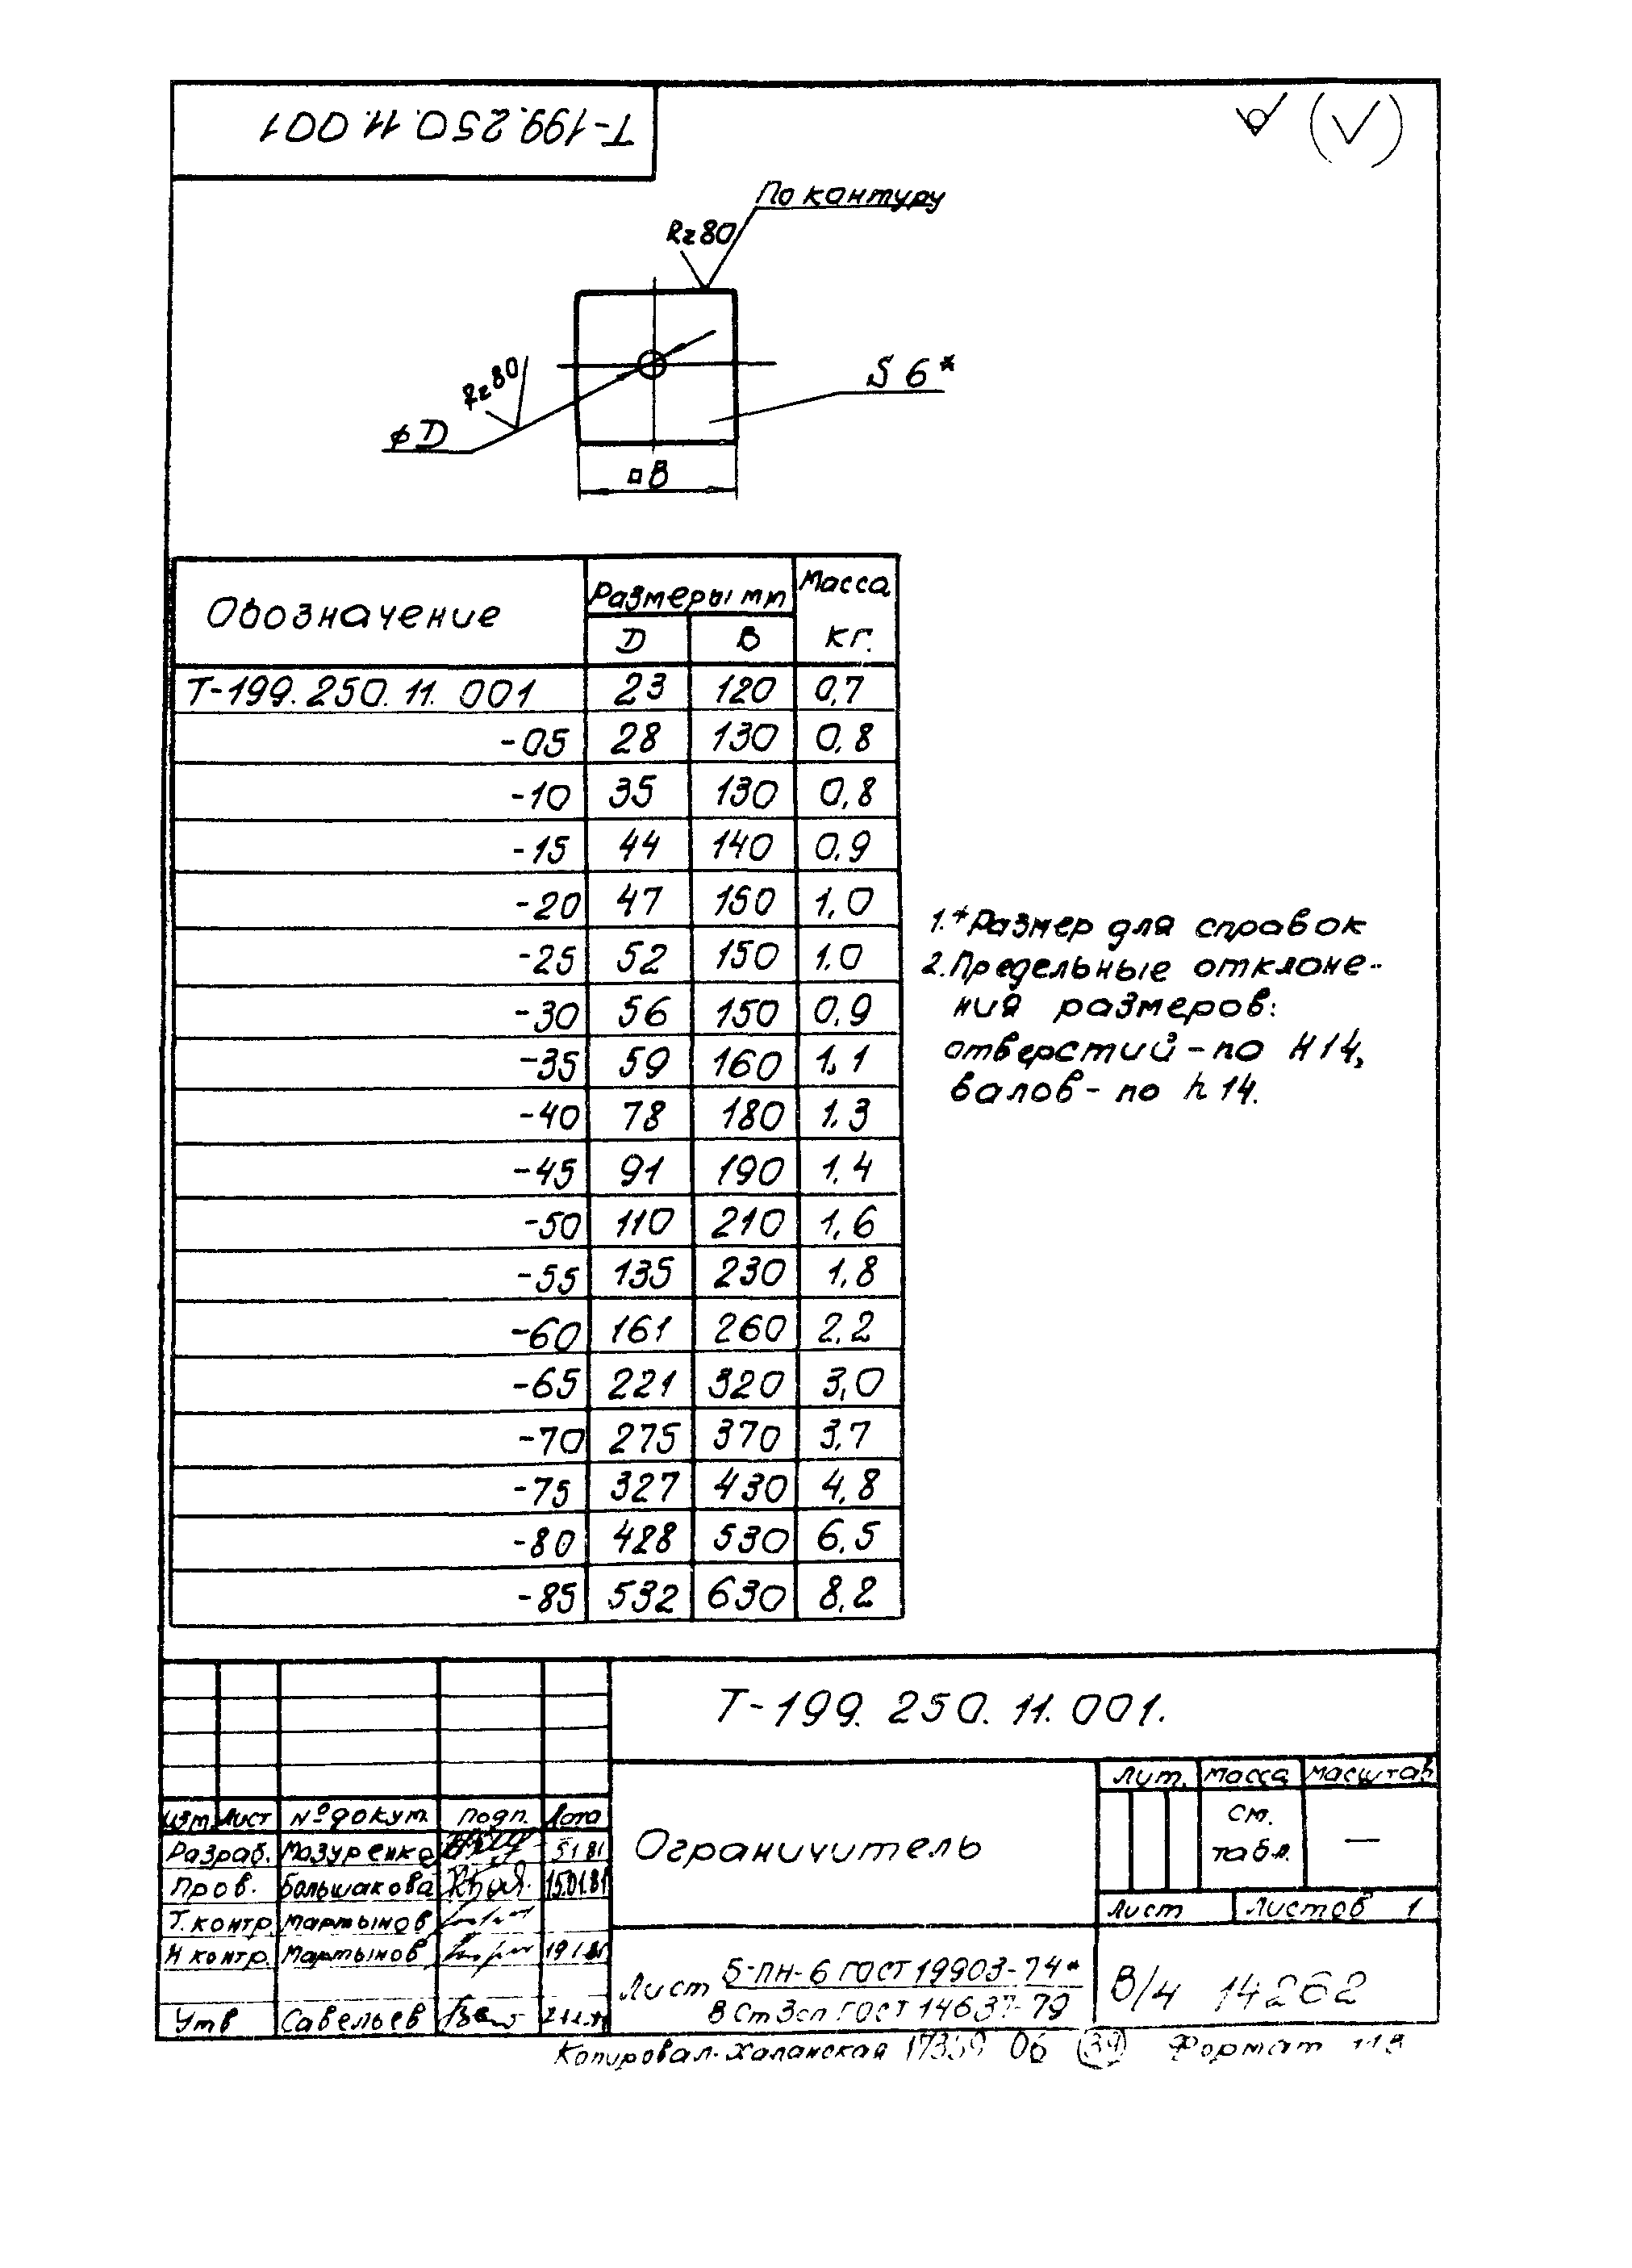 Т-199.250.11.001
По кантуру
Rz80
Rz80
S 6*
φD
□B
Обозначение
Размеры мм
Масса
кг.
D
B
Т-199.250.11.001 23 120 0,7
-05 28 130 0,8
-10 35 130 0,8
-15 44 140 0,9
-20 47 150 1,0
-25 52 150 1.0
-30 56 150 0,9
-35 59 160 1,1
-40 78 180 1.3
-45 91 190 1.4
-50 110 210 1,6
-55 135 230 1,8
-60 161 260 2.2
-65 221 320 3,0
-70 275 370 3,7
-75 327 430 4,8
-80 428 530 6,5
-85 532 630 8,2
1.*Размер для справок
2.Предельные отклоне-
ния размеров:
отверстий-по H14,
валов-по h14.
Т-199.250.11.001.
Лит. Масса Масштаб
Изм. Лист № докум. Подп. Дата
Ограничитель
см.
табл.
—
Разраб. Мазуренко 5.1.81
Пров. Большакова 15.01.81
Т.контр. Мартынов
Н контр. Мартынов
Утв Савельев
Лист Листов 1
Лист Б-ПН-6 ГОСТ 19903-74*
В Ст 3сп ГОСТ 14637-79
В/ч 14262
Копировал. Халанская 06 39 Формат